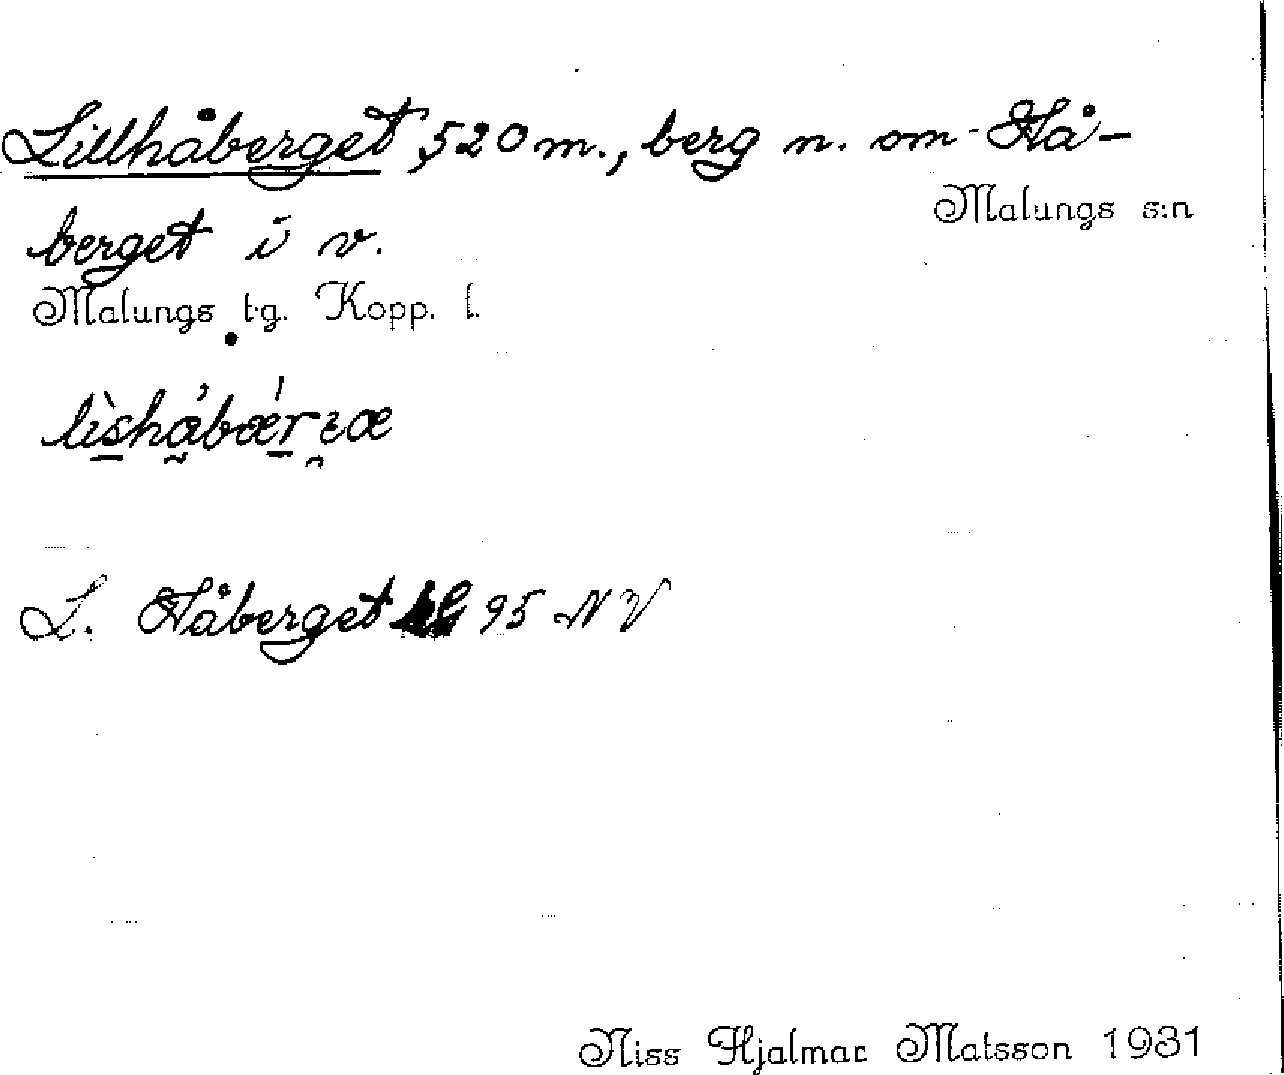 Lillhåberget, 520 m., berg n. om Hå-
Malungs s:n
berget i v.
Malungs tg. Kopp. l.
L. Håberget 95 NV
Niss Hjalmar Matsson 1931